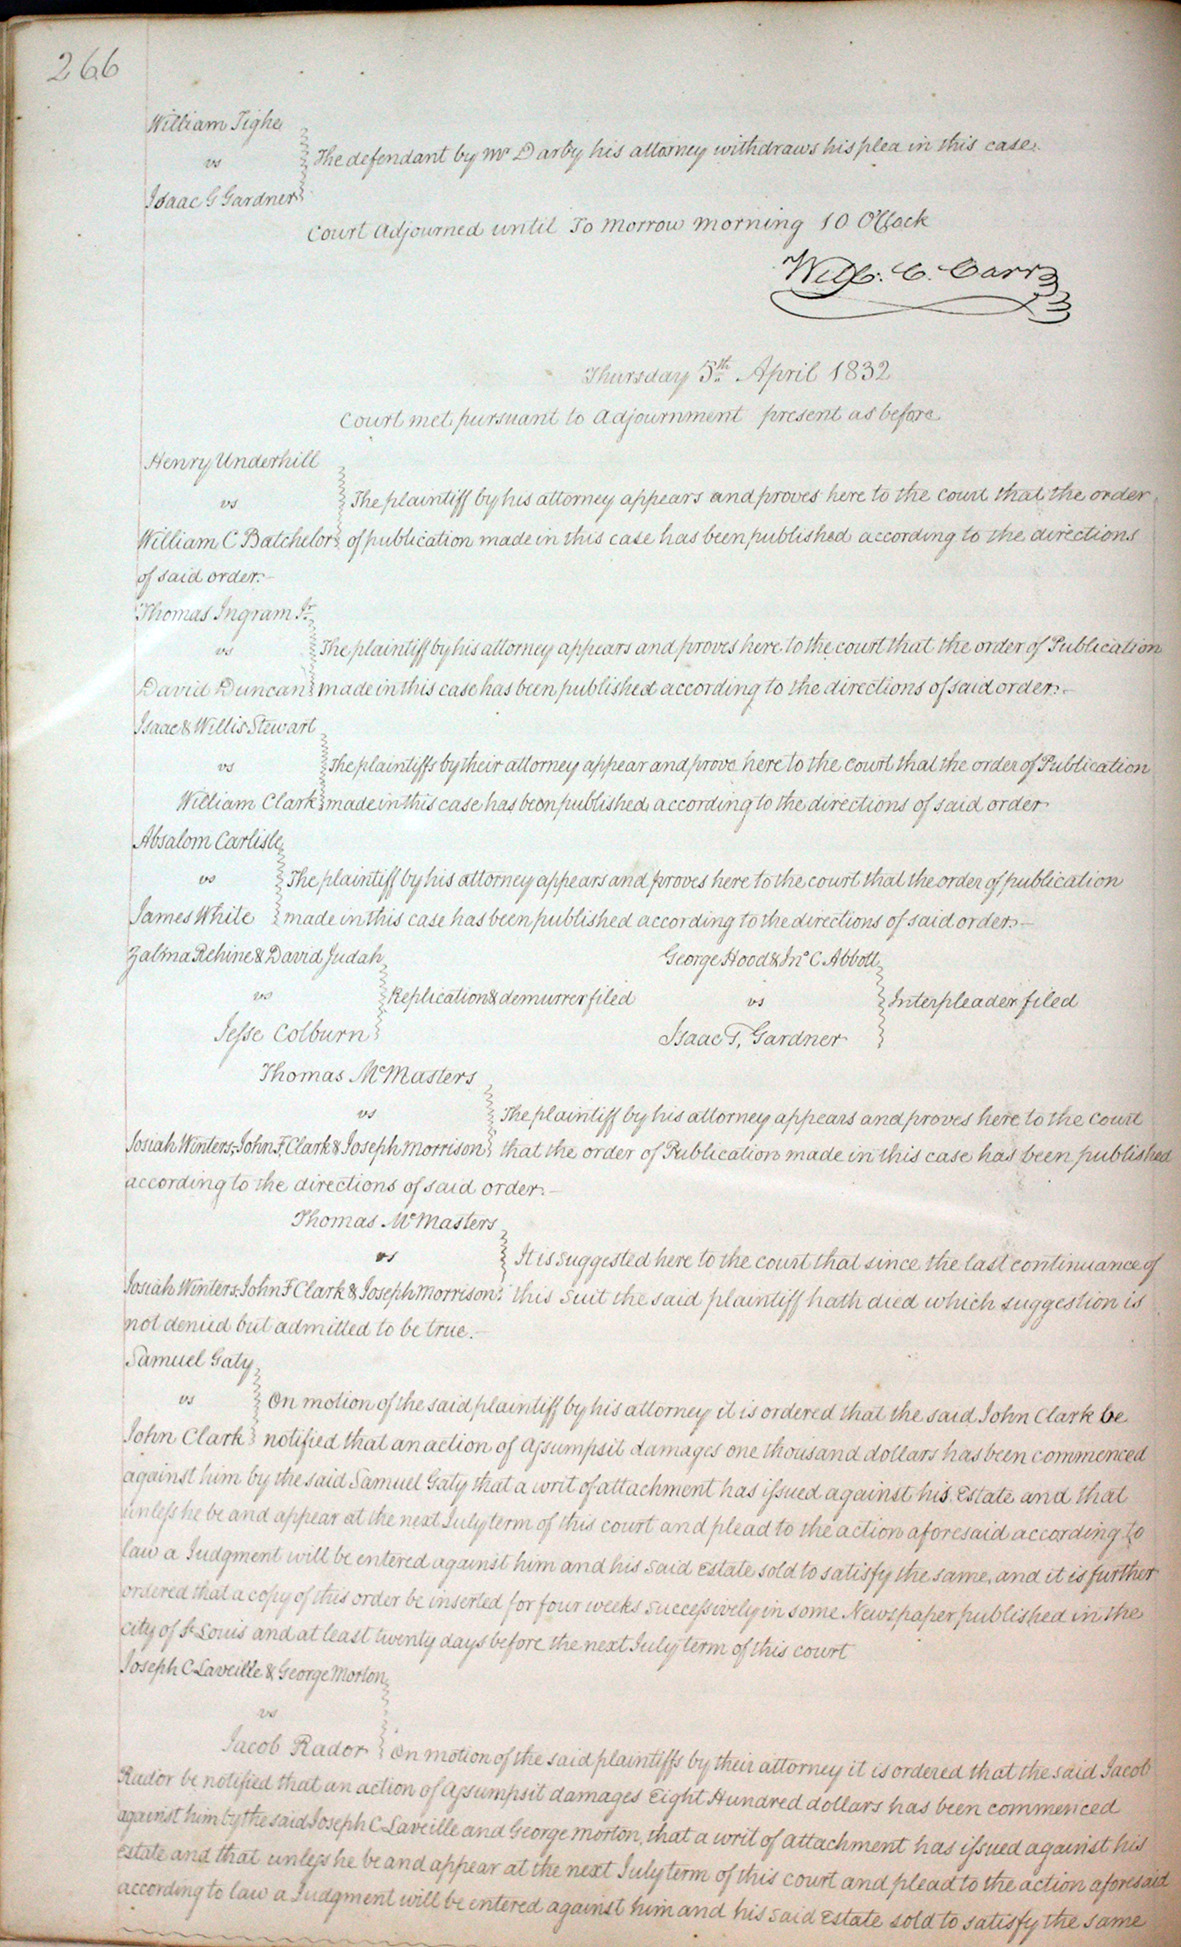 266
William Tighe
vs
The defendant by Mr Darby his attorney withdraws his plea in this case.
Isaac G Gardner
Court Adjourned until To Morrow morning 10 OClock
Will: C. Carr
Thursday 5th April 1832
Court met pursuant to Adjournment present as before
Henry Underhill
vs The plaintiff by his attorney appears and proves here to the court that the order
William C Batchelor of publication made in this case has been published according to the directions
of said order.
Thomas Ingram Jr
vs The plaintiff by his attorney appears and proves here to the court that the order of Publication
David Duncan made in this case has been published according to the directions of said order.
Isaac & Willis Stewart
vs The plaintiffs by their attorney appear and prove here to the court that the order of Publication
William Clark made in this case has been published according to the directions of said order
Absalom Carlisle
vs The plaintiff by his attorney appears and proves here to the court that the order of publication
James White made in this case has been published according to the directions of said order
Zalma Rehine & David Judah
vs Replication & demurrer filed
Jesse Colburn
George Hood & Jno C Abbott
vs Interpleader filed
Isaac T, Gardner
Thomas McMasters
vs The plaintiff by his attorney appears and proves here to the court
Josiah Winters, John F, Clark & Joseph Morrison that the order of Publication made in this case has been published
according to the directions of said order.
Thomas McMasters
vs It is suggested here to the court that since the last continuance of
Josiah Winters, John F Clark & Joseph Morrison this suit the said plaintiff hath died which suggestion is
not denied but admitted to be true.
Samuel Gaty
vs On motion of the said plaintiff by his attorney it is ordered that the said John Clark be
John Clark notified that an action of Assumpsit damages one thousand dollars has been commenced
against him by the said Samuel Gaty that a writ of attachment has issued against his Estate and that
unless he be and appear at the next July term of this court and plead to the action aforesaid according to
law a Judgment will be entered against him and his said Estate sold to satisfy the same, and it is further
ordered that a copy of this order be inserted for four weeks successively in some Newspaper published in the
city of St Louis and at least twenty days before the next July term of this court
Joseph C Laveille & George Morton
vs
Jacob Rador On motion of the said plaintiffs by their attorney it is ordered that the said Jacob
Rador be notified that an action of Assumpsit damages Eight Hundred dollars has been commenced
against him by the said Joseph C Laveille and George Morton, that a writ of attachment has issued against his
Estate and that unless he be and appear at the next July term of this court and plead to the action aforesaid
according to law a Judgment will be entered against him and his said Estate sold to satisfy the same